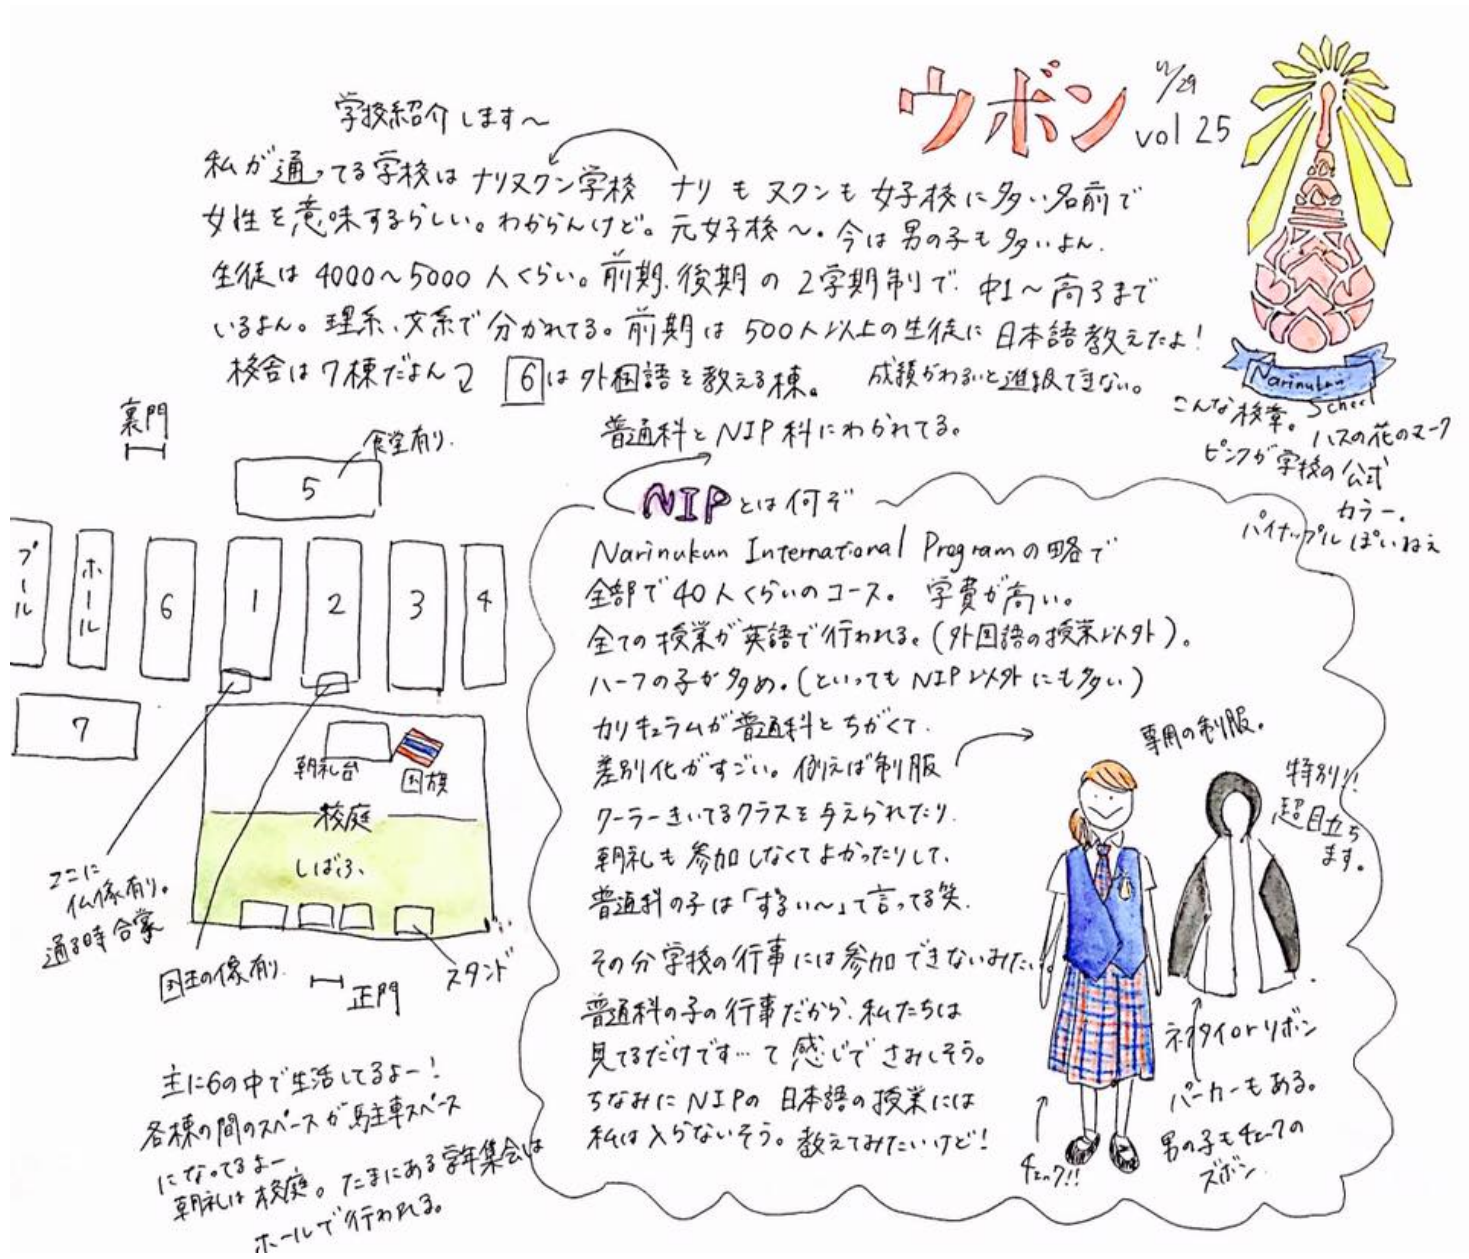 ウボン
11/29
vol 25
学校紹介します〜
私が通ってる学校は ナリヌクン学校 ナリ も ヌクンも 女子校に多い名前で
女性を意味するらしい。わからんけど。元女子校〜。今は男の子も多いよん.
生徒は 4000〜5000 人くらい。前期、後期の 2学期制で、中1〜高3まで
いるよん。理系、文系で分かれてる。前期は 500人以上の生徒に 日本語教えたよ!
校舎は 7棟だよん
6は外国語を教える棟。
成績がわるいと進級できない。
普通科とNIP科にわかれてる。
Narinukun
School
こんな校章。
ハスの花のマーク
ピンクが学校の公式
カラー.
パイナップルぽいねえ
裏門
食堂有り.
5
プール
ホール
6
1
2
3
4
7
朝礼台
国旗
校庭
しばふ
ここに
仏像有り。
通る時合掌
国王の像有り.
正門
スタンド
主に6の中で生活してるよー!
各棟の間のスペースが駐車スペース
になってるよー
朝礼は校庭。たまにある学年集会は
ホールで行われる。
NIPとは何ぞ
Narinukun International Programの略で
全部で40人くらいのコース。学費が高い。
全ての授業が英語で行われる。(外国語の授業以外)。
ハーフの子が多め。(といっても NIP以外にも多い)
カリキュラムが普通科とちがくて、
差別化がすごい。例えば制服
クーラーきいてるクラスを与えられたり、
朝礼も参加しなくてよかったりして、
普通科の子は「ずるい〜」て言ってる笑.
その分学校の行事には参加できないみたい。
普通科の子の行事だから、私たちは
見てるだけです…て感じでさみしそう。
ちなみにNIPの日本語の授業には
私は入らないそう。教えてみたいけど!
専用の制服。
特別!!
超目立ち
ます。
ネクタイorリボン
パーカーもある。
男の子もチェックの
ズボン.
チェック!!